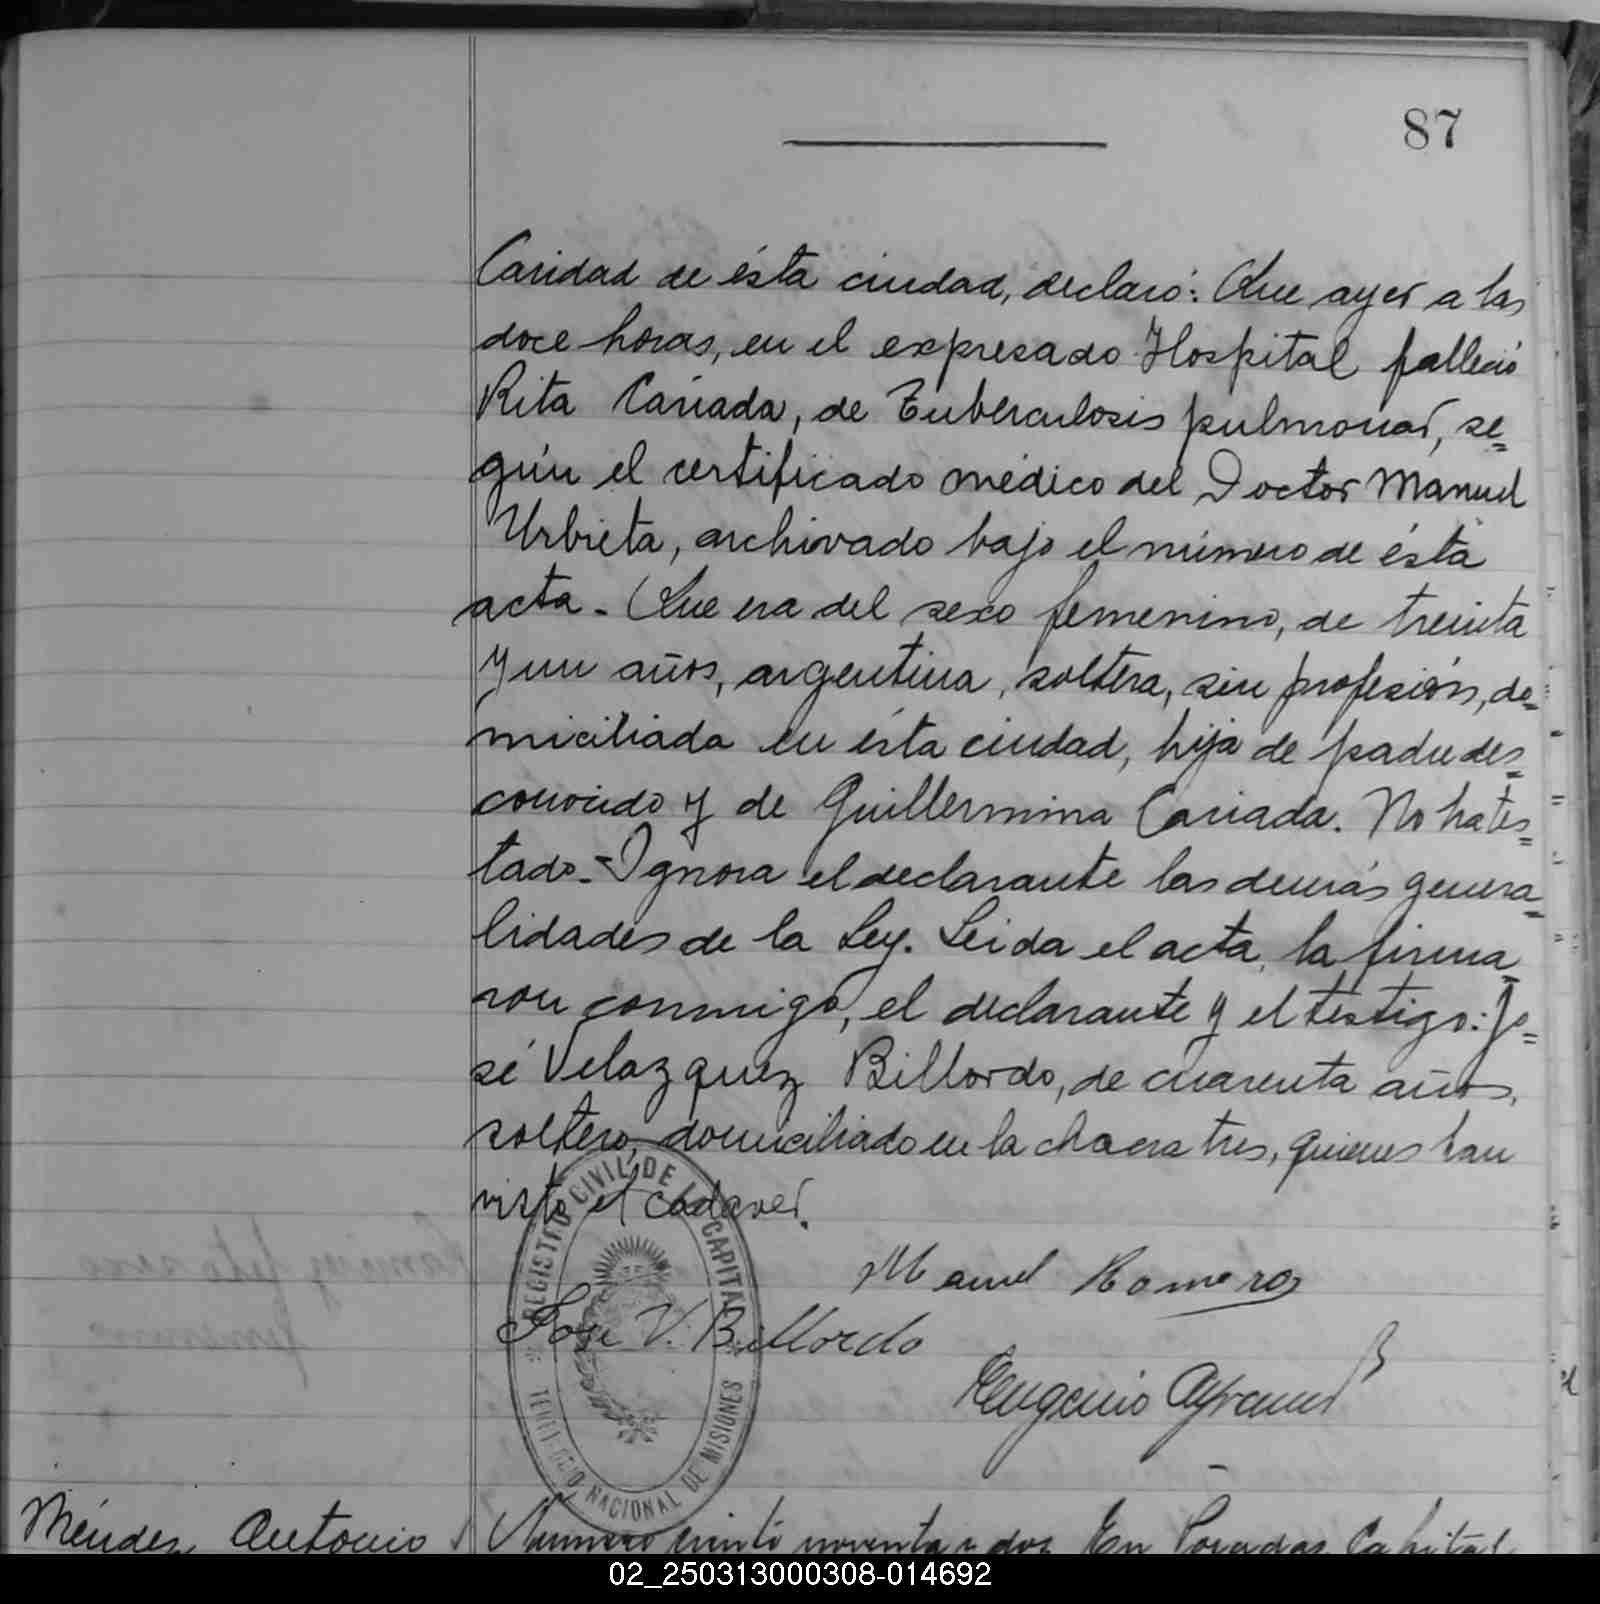 87
Caridad de ésta ciudad, declaró: Que ayer a las
doce horas, en el expresado Hospital falleció
Rita Cañada, de Tuberculosis pulmonar, se=
gún el certificado médico del Doctor Manuel
Urbieta, archivado bajo el número de ésta
acta. Que era del sexo femenino, de treinta
y un años, argentina, soltera, sin profesión, do=
miciliada en ésta ciudad, hija de padre des=
conocido y de Guillermina Cañada. No ha tes=
tado.=Ignora el declarante las demás genera=
lidades de la Ley. Leida el acta, la firma=
ron conmigo, el declarante y el testigo: Jo=
sé Velazquez Billordo, de cuarenta años,
soltero, domiciliado en la chacra tres, quienes han
visto el cadaver.
Manuel Romero
José V. Billordo
Eugenio
REGISTRO CIVIL DE LA CAPITAL
TERRITORIO NACIONAL DE MISIONES
Méndez, Antonio
Número ciento noventa y dos En Posadas Capital
02_250313000308-014692